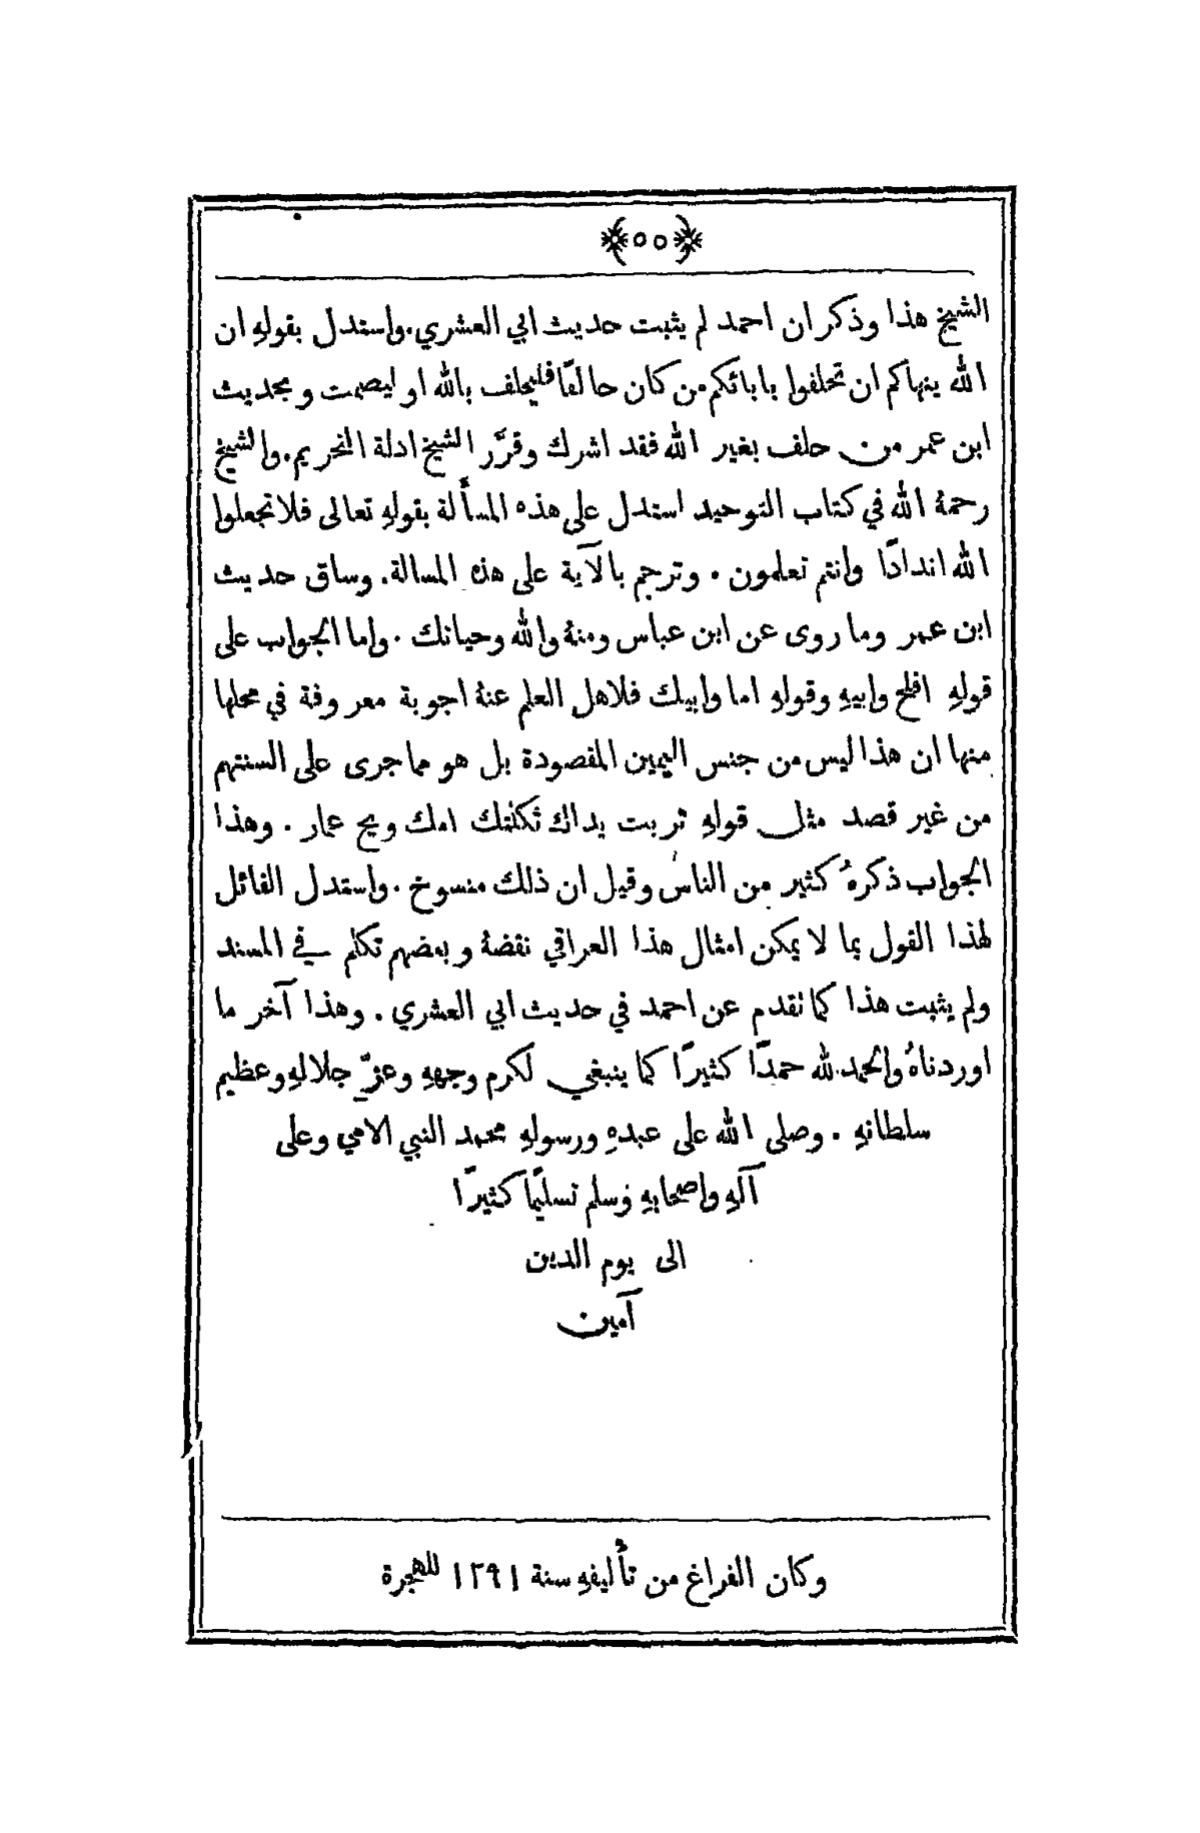 ﴿٥٥﴾
الشيخ هذا وذكر ان احمد لم يثبت حديث ابي العشري. واستدل بقولهِ ان
الله ينهاكم ان تحلفوا بابائكم من كان حالفًا فليحلف بالله او ليصمت وبحديث
ابن عمر من حلف بغير الله فقد اشرك وقرَّر الشيخ ادلة التحريم. والشيخ
رحمهُ الله في كتاب التوحيد استدل على هذه المسأَلة بقولهِ تعالى فلا تجعلوا
الله اندادًا وانتم تعلمون . وترجم بالآية على هذه المسالة. وساق حديث
ابن عمر وما روى عن ابن عباس ومنهُ والله وحياتك . واما الجواب على
قولهِ افلح وابيهِ وقولهِ اما وابيك فلاهل العلم عنهُ اجوبة معروفة في محلها
منها ان هذا ليس من جنس اليمين المقصودة بل هو مما جرى على السنتهم
من غير قصد مثل قولهِ تربت يداك ثكلتك امك ويح عمار . وهذا
الجواب ذكرهُ كثير من الناس وقيل ان ذلك منسوخ . واستدل القائل
لهذا القول بما لا يمكن امثال هذا العراقي نقضهُ وبعضهم تكلم في المسند
ولم يثبت هذا كما تقدم عن احمد في حديث ابي العشري . وهذا آخر ما
اوردناهُ والحمد لله حمدًا كثيرًا كما ينبغي لكرم وجههِ وعزّ جلالهِ وعظيم
سلطانهِ . وصلى الله على عبدهِ ورسولهِ محمد النبي الامي وعلى
آلهِ واصحابهِ وسلم تسليمًا كثيرًا
الى يوم الدين
آمين
وكان الفراغ من تأليفهِ سنة ١٢٩١ للهجرة